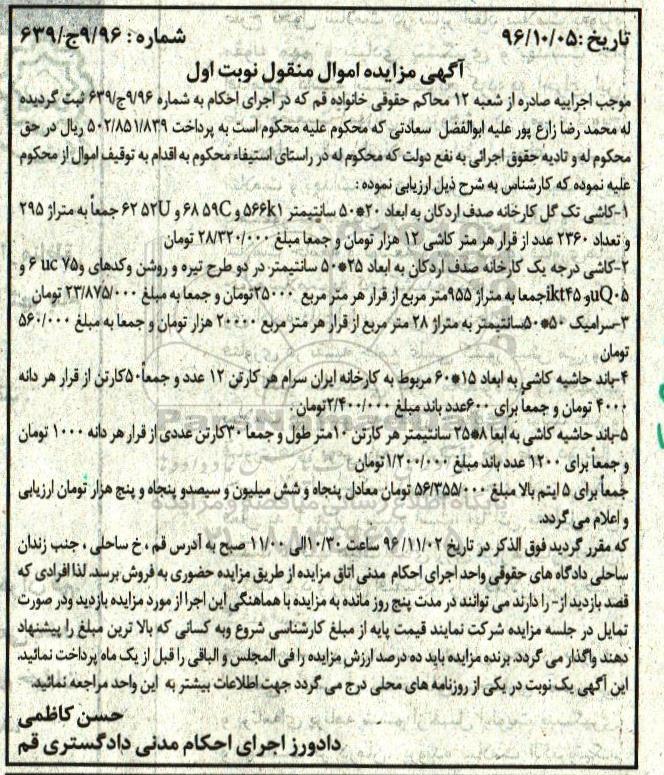 تاریخ :۹۶/۱۰/۰۵
شماره : ۹/۹۶ج/۶۳۹
آگهی مزایده اموال منقول نوبت اول
موجب اجراییه صادره از شعبه ۱۲ محاکم حقوقی خانواده قم که در اجرای احکام به شماره ۹/۹۶ج/۶۳۹ ثبت گردیده
له محمد رضا زارع پور علیه ابوالفضل سعادتی که محکوم علیه محکوم است به پرداخت ۵۰۲/۸۵۱/۸۳۹ ریال در حق
محکوم له و تادیه حقوق اجرائی به نفع دولت که محکوم له در راستای استیفاء محکوم به اقدام به توقیف اموال از محکوم
علیه نموده که کارشناس به شرح ذیل ارزیابی نموده :
۱-کاشی تک گل کارخانه صدف اردکان به ابعاد ۲۰*۵۰ سانتیمتر ۵۶۶k۱ و ۶۸ ۵۹C و ۶۲ ۵۲U جمعاً به متراژ ۲۹۵
و تعداد ۲۳۶۰ عدد از قرار هر متر کاشی ۱۲ هزار تومان و جمعا مبلغ ۲۸/۳۲۰/۰۰۰ تومان
۲-کاشی درجه یک کارخانه صدف اردکان به ابعاد ۲۵*۵۰ سانتیمتر در دو طرح تیره و روشن وکدهای و۷۵ uc ۶ و
uQ۰۵و ikt۴۵جمعا به متراژ ۹۵۵متر مربع از قرار هر متر مربع ۲۵۰۰۰تومان و جمعا به مبلغ ۲۳/۸۷۵/۰۰۰ تومان
۳-سرامیک ۵۰*۵۰سانتیمتر به متراژ ۲۸ متر مربع از قرار هر متر مربع ۲۰۰۰۰ هزار تومان و جمعا به مبلغ ۵۶۰/۰۰۰
تومان
۴-باند حاشیه کاشی به ابعاد ۱۵*۶۰ مربوط به کارخانه ایران سرام هر کارتن ۱۲ عدد و جمعاً۵۰کارتن از قرار هر دانه
۴۰۰۰ تومان و جمعاً برای ۶۰۰عدد باند مبلغ ۲/۴۰۰/۰۰۰تومان .
۵-باند حاشیه کاشی به ابعا ۸*۲۵ سانتیمتر هر کارتن ۱۰متر طول و جمعا ۳۰کارتن عددی از قرار هر دانه ۱۰۰۰ تومان
و جمعاً برای ۱۲۰۰ عدد باند مبلغ ۱/۲۰۰/۰۰۰تومان
جمعاً برای ۵ ایتم بالا مبلغ ۵۶/۳۵۵/۰۰۰ تومان معادل پنجاه و شش میلیون و سیصدو پنجاه و پنج هزار تومان ارزیابی
و اعلام می گردد.
که مقرر گردید فوق الذکر در تاریخ ۹۶/۱۱/۰۲ ساعت ۱۰/۳۰الی ۱۱/۰۰ صبح به آدرس قم ، خ ساحلی ، جنب زندان
ساحلی دادگاه های حقوقی واحد اجرای احکام مدنی اتاق مزایده از طریق مزایده حضوری به فروش برسد. لذا افرادی که
قصد بازدید از- را دارند می توانند در مدت پنج روز مانده به مزایده با هماهنگی این اجرا از مورد مزایده بازدید ودر صورت
تمایل در جلسه مزایده شرکت نمایند قیمت پایه از مبلغ کارشناسی شروع وبه کسانی که بالا ترین مبلغ را پیشنهاد
دهند واگذار می گردد. برنده مزایده باید ده درصد ارزش مزایده را فی المجلس و الباقی را قبل از یک ماه پرداخت نمائید.
این آگهی یک نوبت در یکی از روزنامه های محلی درج می گردد جهت اطلاعات بیشتر به این واحد مراجعه نمائید.
حسن کاظمی
دادورز اجرای احکام مدنی دادگستری قم